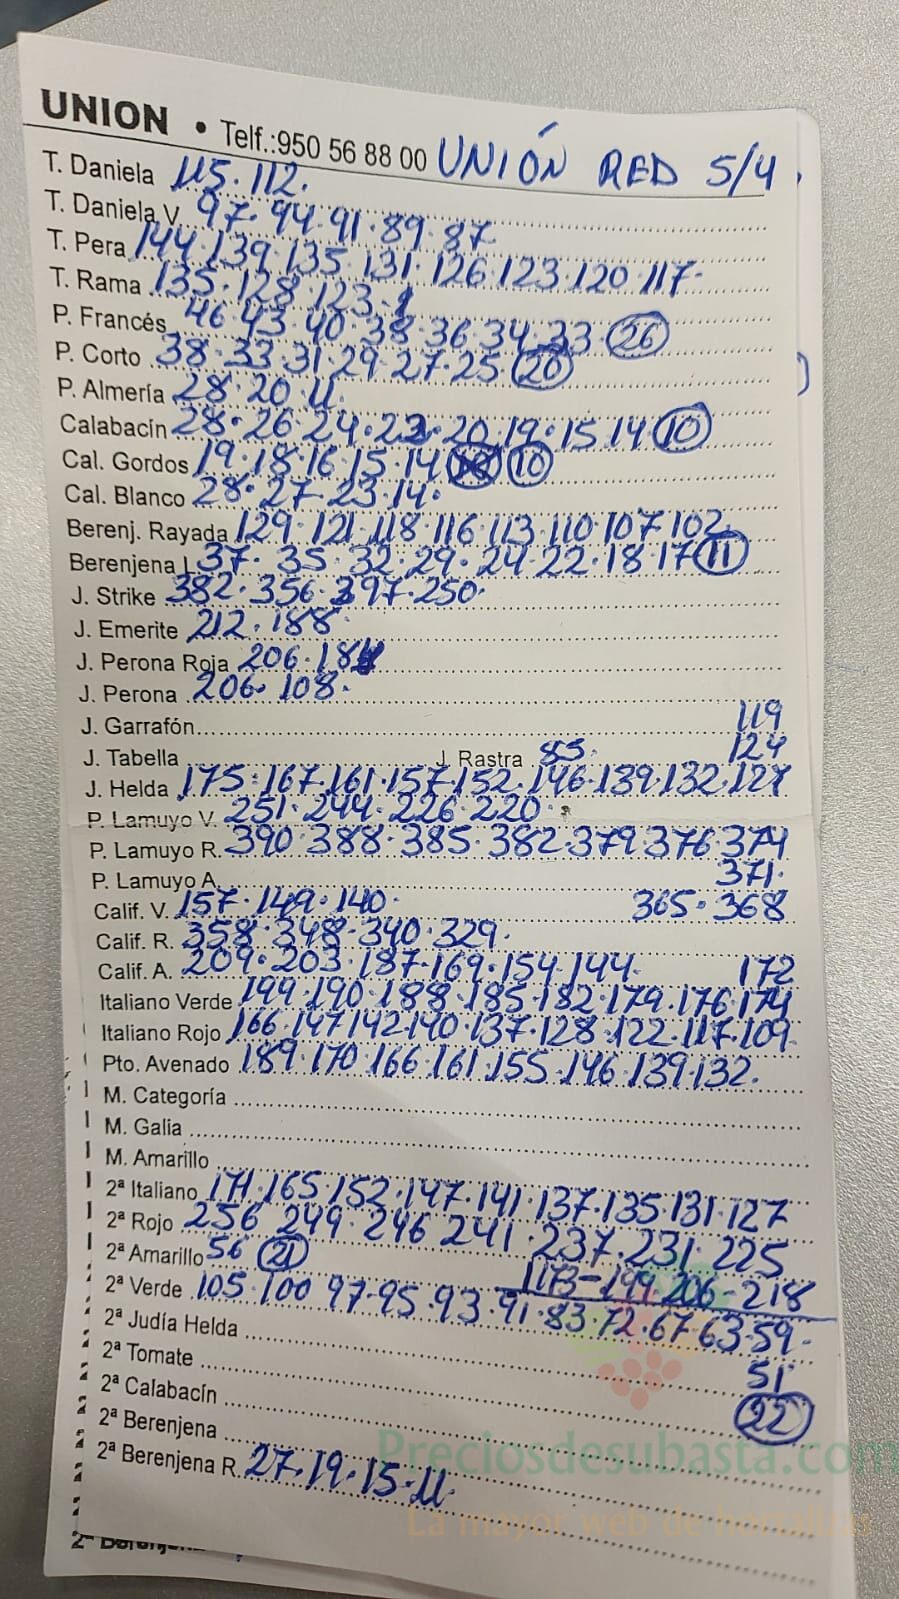 UNION • Telf.:950 56 88 00 UNIÓN RED 5/4
T. Daniela 115.112.
T. Daniela V. 97.94.91.89.87
T. Pera 144.139.135.131.126.123.120.117.
T. Rama 135.128.123.
P. Francés 46.43.40.38.36.34.33 26
P. Corto 38.33.31.29.27.25 20
P. Almería 28.20.11.
Calabacín 28.26.24.22.20.19.15.14 10
Cal. Gordos 19.18.16.15.14 10
Cal. Blanco 28.27.23.14.
Berenj. Rayada 129.121.118.116.113.110.107.102.
Berenjena L 37.35.32.29.24.22.18.17 11
J. Strike 382.356.397.250.
J. Emerite 212.188.
J. Perona Roja 206.
J. Perona 206.108.
J. Garrafón 119
J. Tabella J. Rastra 85. 124
J. Helda 175.167.161.157.152.146.139.132.127
P. Lamuyo V. 251.244.226.220.
P. Lamuyo R. 390.388.385.382.379.376.374
P. Lamuyo A. 371.
Calif. V. 157.149.140. 365.368
Calif. R. 358.348.340.329.
Calif. A. 209.203.187.169.154.144. 172
Italiano Verde 199.190.188.185.182.179.176.174
Italiano Rojo 166.147.142.140.137.128.122.117.109.
Pto. Avenado 189.170.166.161.155.146.139.132.
M. Categoría
M. Galia
M. Amarillo
2ª Italiano 171.165.152.147.141.137.135.131.127
2ª Rojo 256 249.246 241.237.231.225
2ª Amarillo 56 21 199.206-218
2ª Verde 105.100 97.95.93.91.83.72.67 63.59.
2ª Judía Helda 51
2ª Tomate
2ª Calabacín 22
2ª Berenjena
2ª Berenjena R. 27.19.15.11
Preciosdesubasta.com
La mayor web de hortalizas